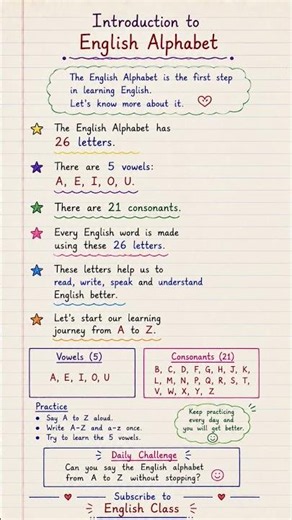 Introduction to
English Alphabet
The English Alphabet is the first step
in learning English.
Let's know more about it.
The English Alphabet has
26 letters.
There are 5 vowels:
A, E, I, O, U.
There are 21 consonants.
Every English word is made
using these 26 letters.
These letters help us to
read, write, speak and understand
English better.
Let's start our learning
journey from A to Z.
Vowels (5)
A, E, I, O, U
Consonants (21)
B, C, D, F, G, H, J, K,
L, M, N, P, Q, R, S, T,
V, W, X, Y, Z
Practice
• Say A to Z aloud.
• Write A-Z and a-z once.
• Try to learn the 5 vowels.
Keep practicing
every day and
you will get better.
Daily Challenge
Can you say the English alphabet
from A to Z without stopping?
Subscribe to
English Class